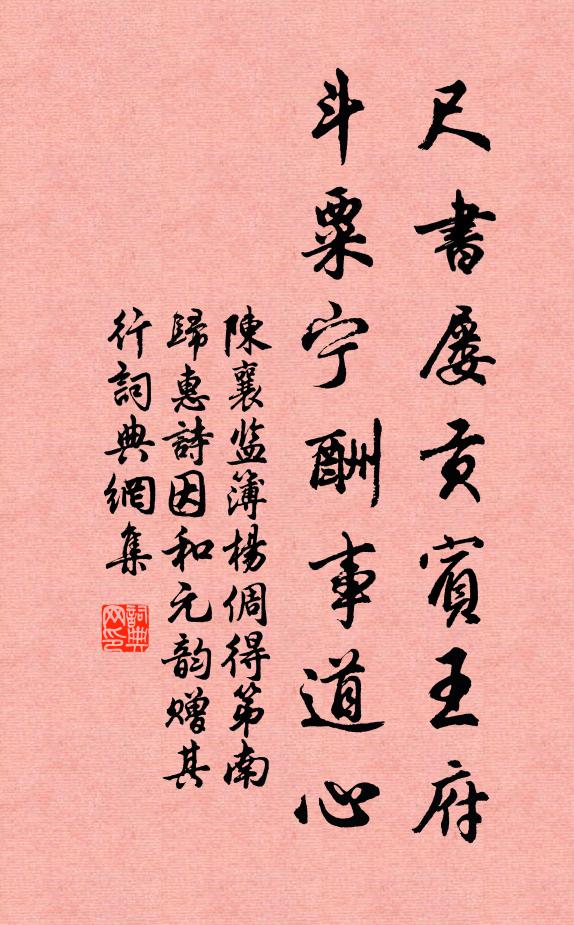 尺書屡贡賓王府
斗粟宁酬事道心
陳襄监簿楊倜得第南
歸惠詩因和元韵赠其
行詞典網集
詞典网印